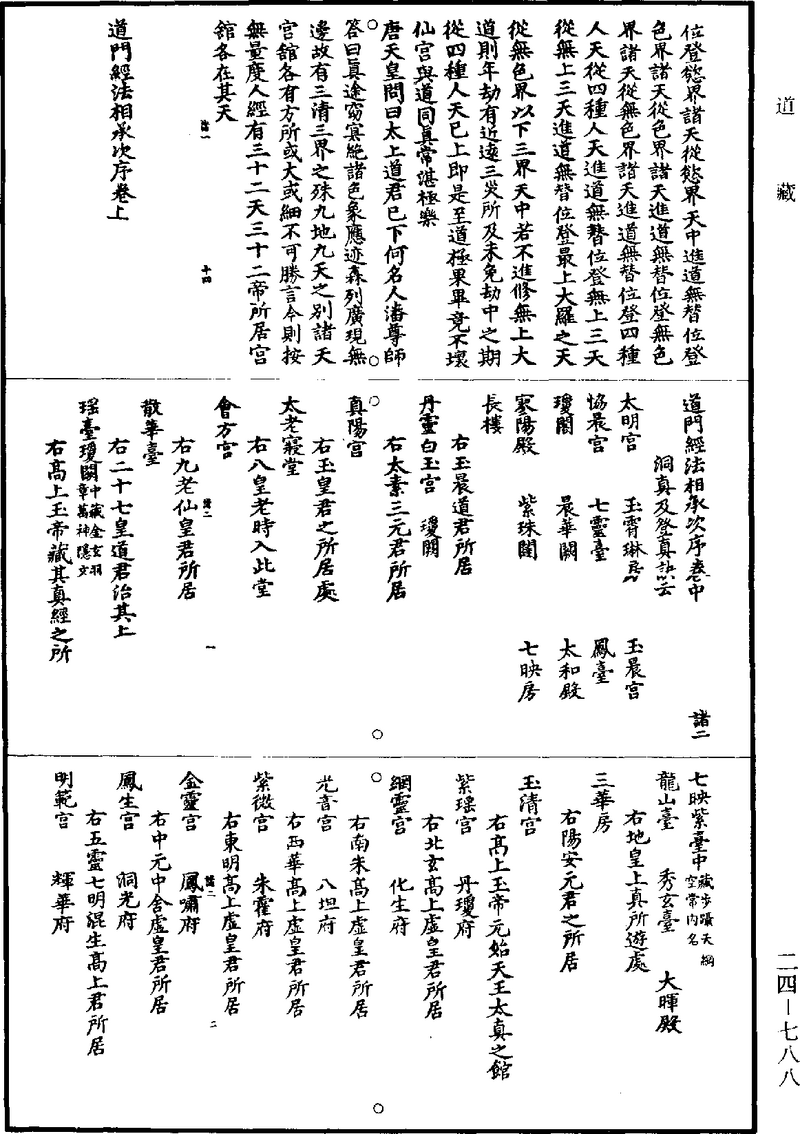 道藏
位登慾界諸天從慾界天中進道無替位登
色界諸天從色界諸天進道無替位登無色
界諸天從無色界諸天進道無替位登四種
人天從四種人天進道無替位登無上三天
從無上三天進道無替位登最上大羅之天
從無色界以下三界天中若不進修無上大
道則年劫有近遠三災所及未免劫中之期
從四種人天已上即是至道極果畢竟不壞
仙宮與道同真常湛極樂
唐天皇問曰太上道君已下何名人潘尊師
答曰真途窈冥絶諸色象應迹森列廣現無
邊故有三清三界之殊九地九天之別諸天
宮舘各有方所或大或細不可勝言今則按
無量度人經有三十二天三十二帝所居宮
舘各在其天
諸一 十四
道門經法相承次序卷上
道門經法相承次序卷中 諸二
洞真及登真訣云
太明宮 玉霄琳房 玉晨宮
恊晨宮 七靈臺 鳳臺
瓊閣 晨華闕 太和殿
寒陽殿 紫珠闥 七映房
長樓
右玉晨道君所居
丹靈白玉宮 瓊闕
右太素三元君所居
真陽宮
右玉皇君之所居處
太老寢堂
右八皇老時入此堂
會方宮
諸二 一
右九老仙皇君所居
散華臺
右二十七皇道君治其上
瑶臺瓊闕中藏金玄羽章萬神隱文
右高上玉帝藏其真經之所
七映紫臺中藏步躡天綱空常内名
龍山臺 秀玄臺 大暉殿
右地皇上真所遊處
三華房
右陽安元君之所居
玉清宮
右高上玉帝元始天王太真之館
紫瑶宮 丹瓊府
右北玄高上虛皇君所居
綱靈宮 化生府
右南朱高上虛皇君所居
光音宮 八坦府
右西華高上虛皇君所居
紫微宮 朱霍府
右東明高上虛皇君所居
諸二 二
金靈宮 鳳嘯府
右中元中舍虛皇君所居
鳳生宮 洞光府
右五靈七明混生高上君所居
明範宮 輝華府
二四—七八八